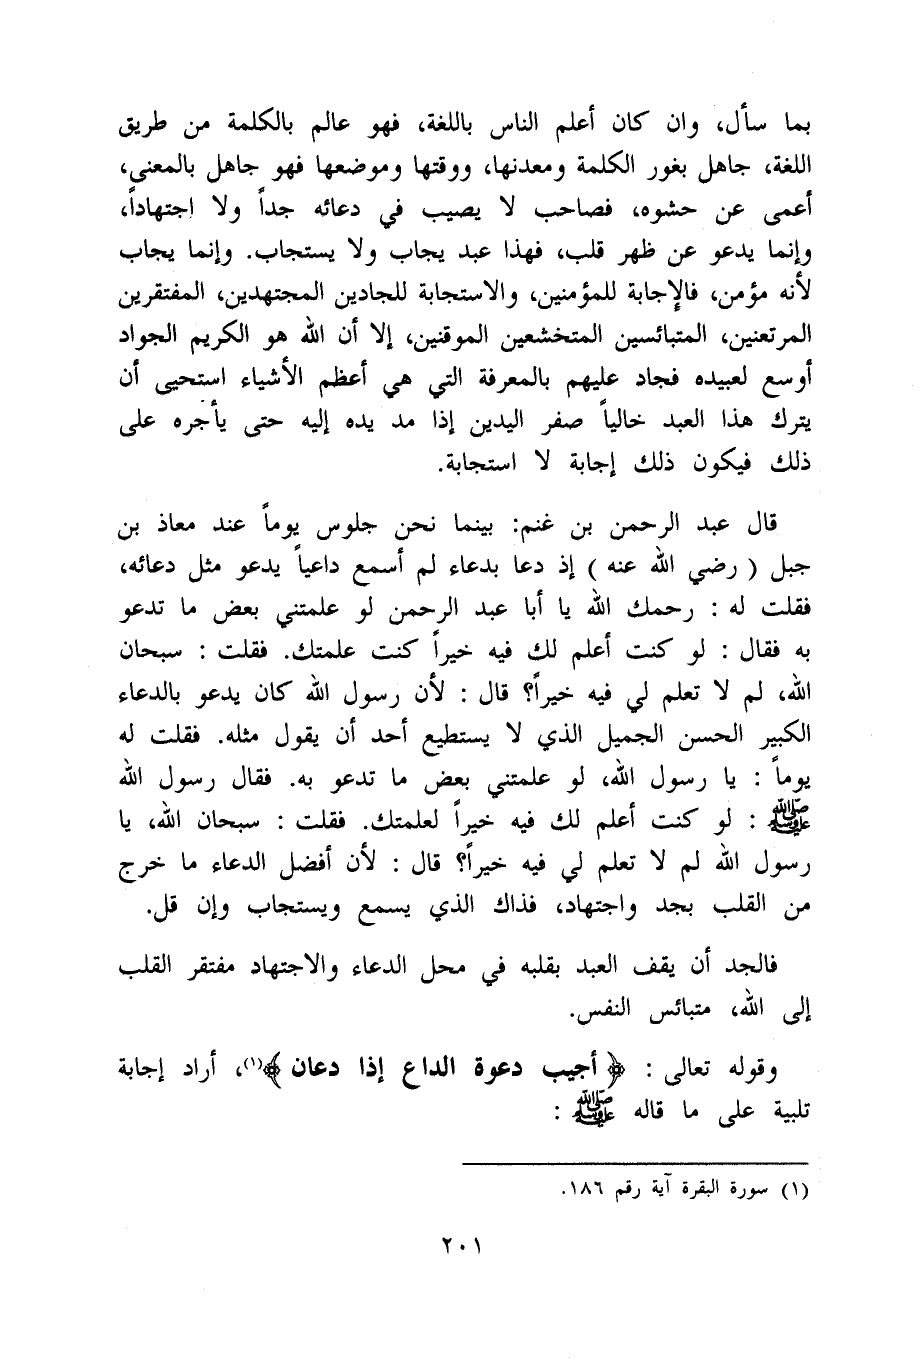 بما سأل، وان كان أعلم الناس باللغة، فهو عالم بالكلمة من طريق
اللغة، جاهل بغور الكلمة ومعدنها، ووقتها وموضعها فهو جاهل بالمعنى،
أعمى عن حشوه، فصاحب لا يصيب في دعائه جداً ولا اجتهاداً،
وإنما يدعو عن ظهر قلب، فهذا عبد يجاب ولا يستجاب. وإنما يجاب
لأنه مؤمن، فالإجابة للمؤمنين، والاستجابة للجادين المجتهدين، المفتقرين
المرتعنين، المتبائسين المتخشعين الموقنين، إلا أن الله هو الكريم الجواد
أوسع لعبيده فجاد عليهم بالمعرفة التي هي أعظم الأشياء استحيى أن
يترك هذا العبد خالياً صفر اليدين إذا مد يده إليه حتى يأجره على
ذلك فيكون ذلك إجابة لا استجابة.
قال عبد الرحمن بن غنم: بينما نحن جلوس يوماً عند معاذ بن
جبل ( رضي الله عنه ) إذ دعا بدعاء لم أسمع داعياً يدعو مثل دعائه،
فقلت له : رحمك الله يا أبا عبد الرحمن لو علمتني بعض ما تدعو
به فقال : لو كنت أعلم لك فيه خيراً كنت علمتك. فقلت : سبحان
الله، لم لا تعلم لي فيه خيراً؟ قال : لأن رسول الله كان يدعو بالدعاء
الكبير الحسن الجميل الذي لا يستطيع أحد أن يقول مثله. فقلت له
يوماً : يا رسول الله، لو علمتني بعض ما تدعو به. فقال رسول الله
ﷺ : لو كنت أعلم لك فيه خيراً لعلمتك. فقلت : سبحان الله، يا
رسول الله لم لا تعلم لي فيه خيراً؟ قال : لأن أفضل الدعاء ما خرج
من القلب بجد واجتهاد، فذاك الذي يسمع ويستجاب وإن قل.
فالجد أن يقف العبد بقلبه في محل الدعاء والاجتهاد مفتقر القلب
إلى الله، متبائس النفس.
وقوله تعالى : ﴿ أجيب دعوة الداع إذا دعان ﴾(١)، أراد إجابة
تلبية على ما قاله ﷺ :
(١) سورة البقرة آية رقم ١٨٦.
٢٠١